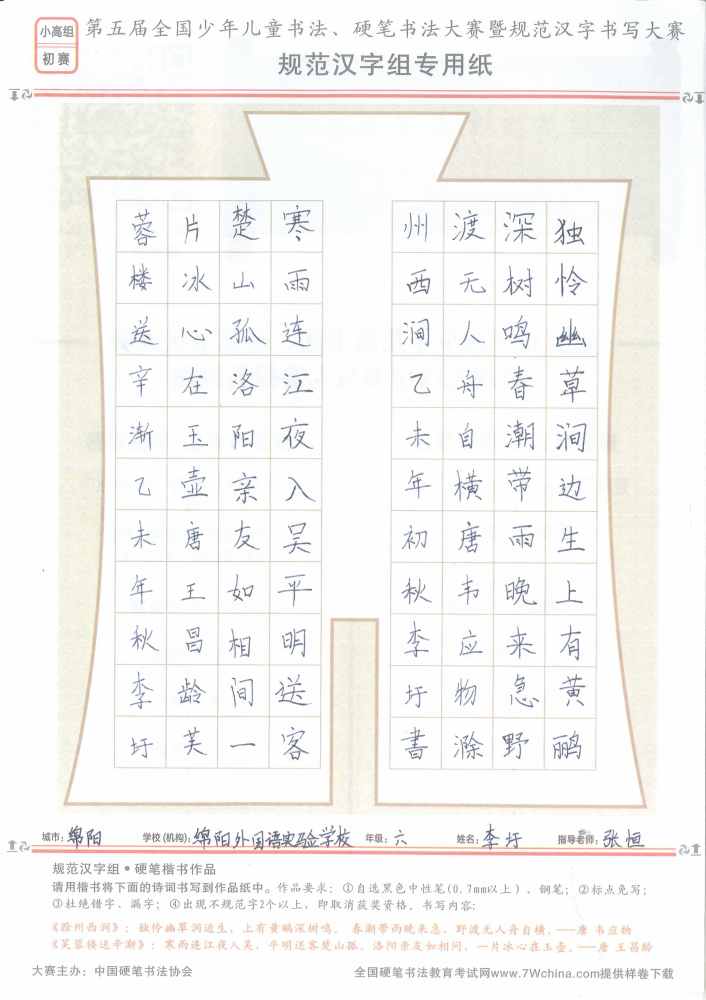 小高组
初赛
第五届全国少年儿童书法、硬笔书法大赛暨规范汉字书写大赛
规范汉字组专用纸
独怜幽草涧边生上有黄鹂
深树鸣春潮带雨晚来急野
渡无人舟自横唐韦应物滁
州西涧乙未年初秋李圩書
寒雨连江夜入吴平明送客
楚山孤洛阳亲友如相间一
片冰心在玉壶唐王昌龄芙
蓉楼送辛渐乙未年秋李圩
城市：绵阳 学校(机构)：绵阳外国语实验学校 年级：六 姓名：李圩 指导老师：张恒
规范汉字组●硬笔楷书作品
请用楷书将下面的诗词书写到作品纸中。作品要求：①自选黑色中性笔(0.7mm以上）、钢笔；②标点免写；
③杜绝错字、漏字；④出现不规范字2个以上，即取消获奖资格。书写内容：
《滁州西涧》：独怜幽草涧边生，上有黄鹂深树鸣。 春潮带雨晚来急，野渡无人舟自横。——唐 韦应物
《芙蓉楼送辛渐》：寒雨连江夜入吴，平明送客楚山孤。洛阳亲友如相问，一片冰心在玉壶。——唐 王昌龄
大赛主办：中国硬笔书法协会 全国硬笔书法教育考试网www.7Wchina.com提供样卷下载